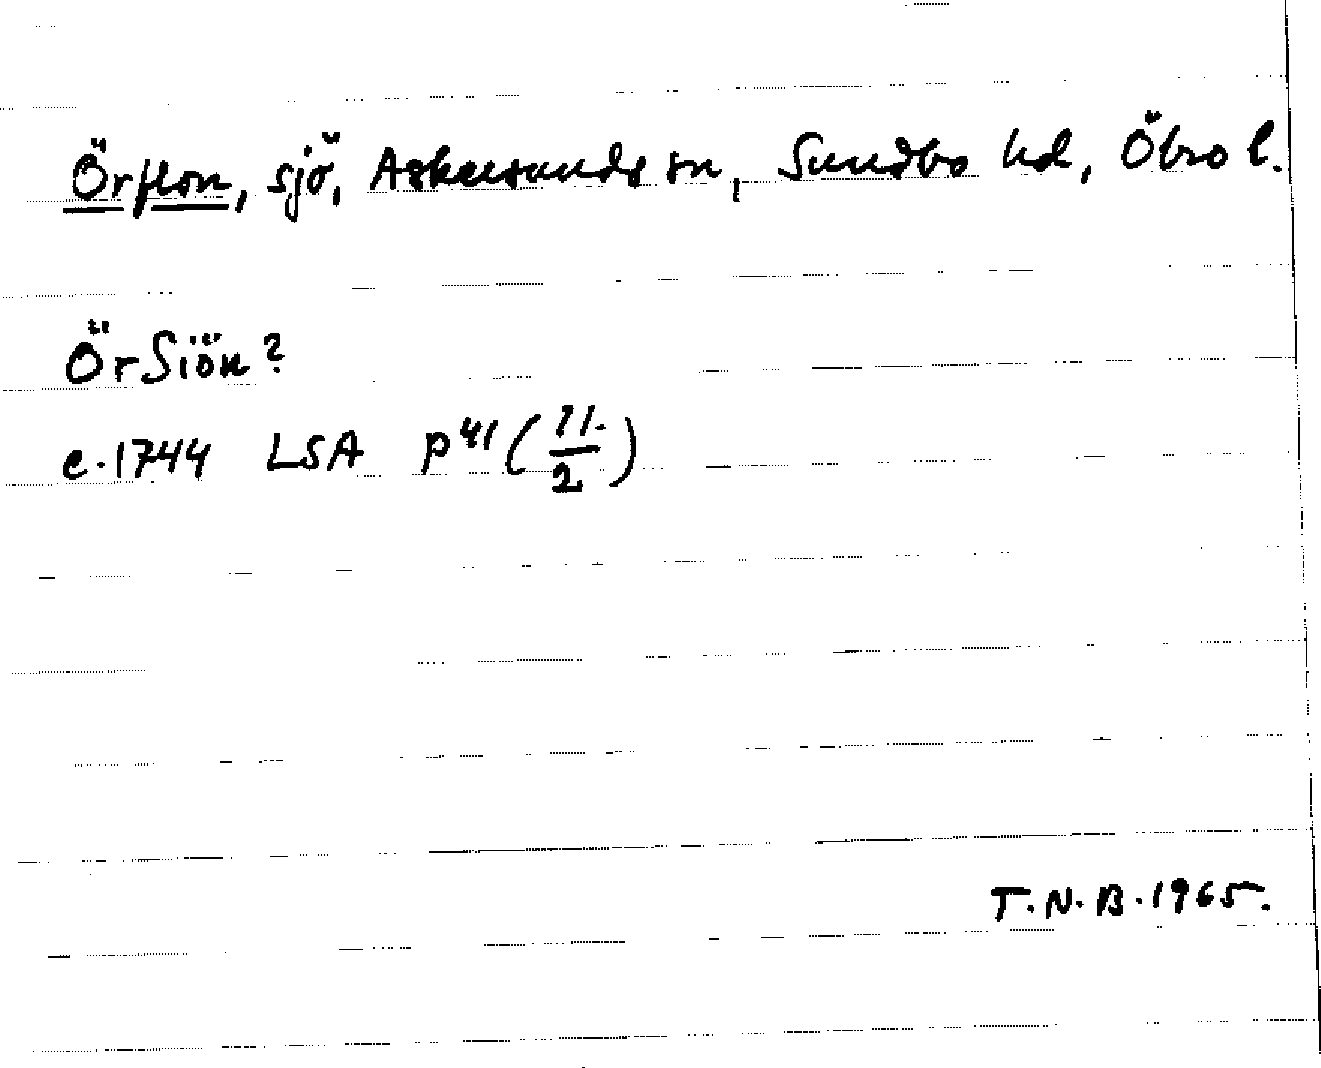 Örflon, sjö, Askersunds sn, Sundbo hd, Öbro l.
ÖrSiön?
c.1744 LSA P41 (11./2)
T.N.B. 1965.